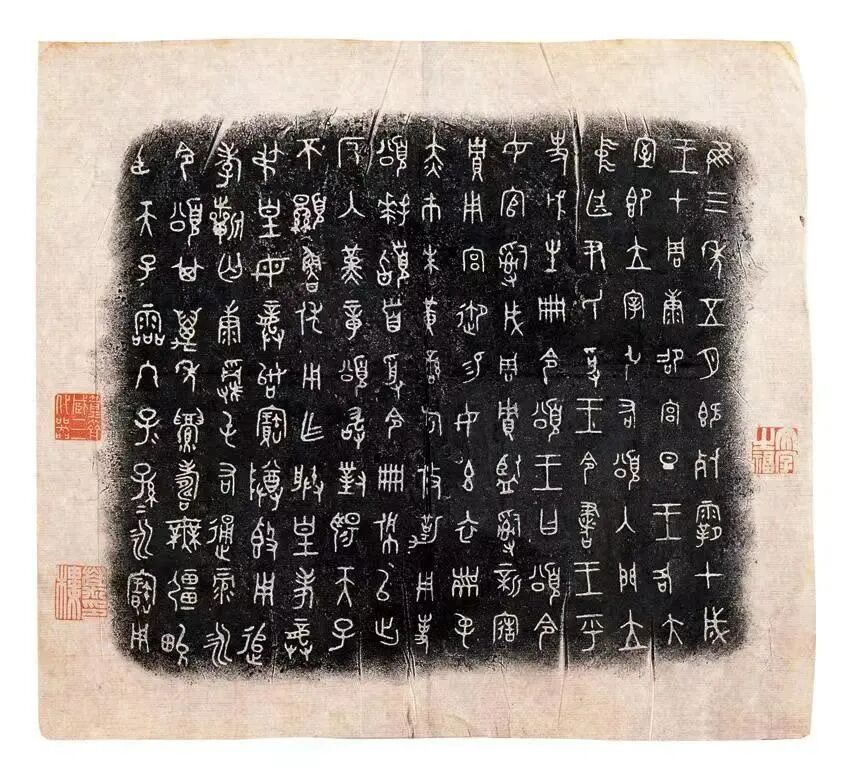 隹三年五月既死霸甲戌
王才周康卲宫旦王各大
室即立宰弘右頌入門立
中廷尹氏受王令書王乎
史虢生册令頌王曰頌令
女官𤔲成周貯監𤔲新造
貯用宫御易女玄衣黹屯
赤巿朱黄䜌旂攸勒用事
頌拜𩒨首受令册佩以出
反入堇章頌敢對揚天子
不顯魯休用乍朕皇考龏
弔皇母龏始寶尊𣪘用追
孝匄康屯右通彔永
令頌其萬年眉壽無彊畯
臣天子霝冬子子孫孫永寶用